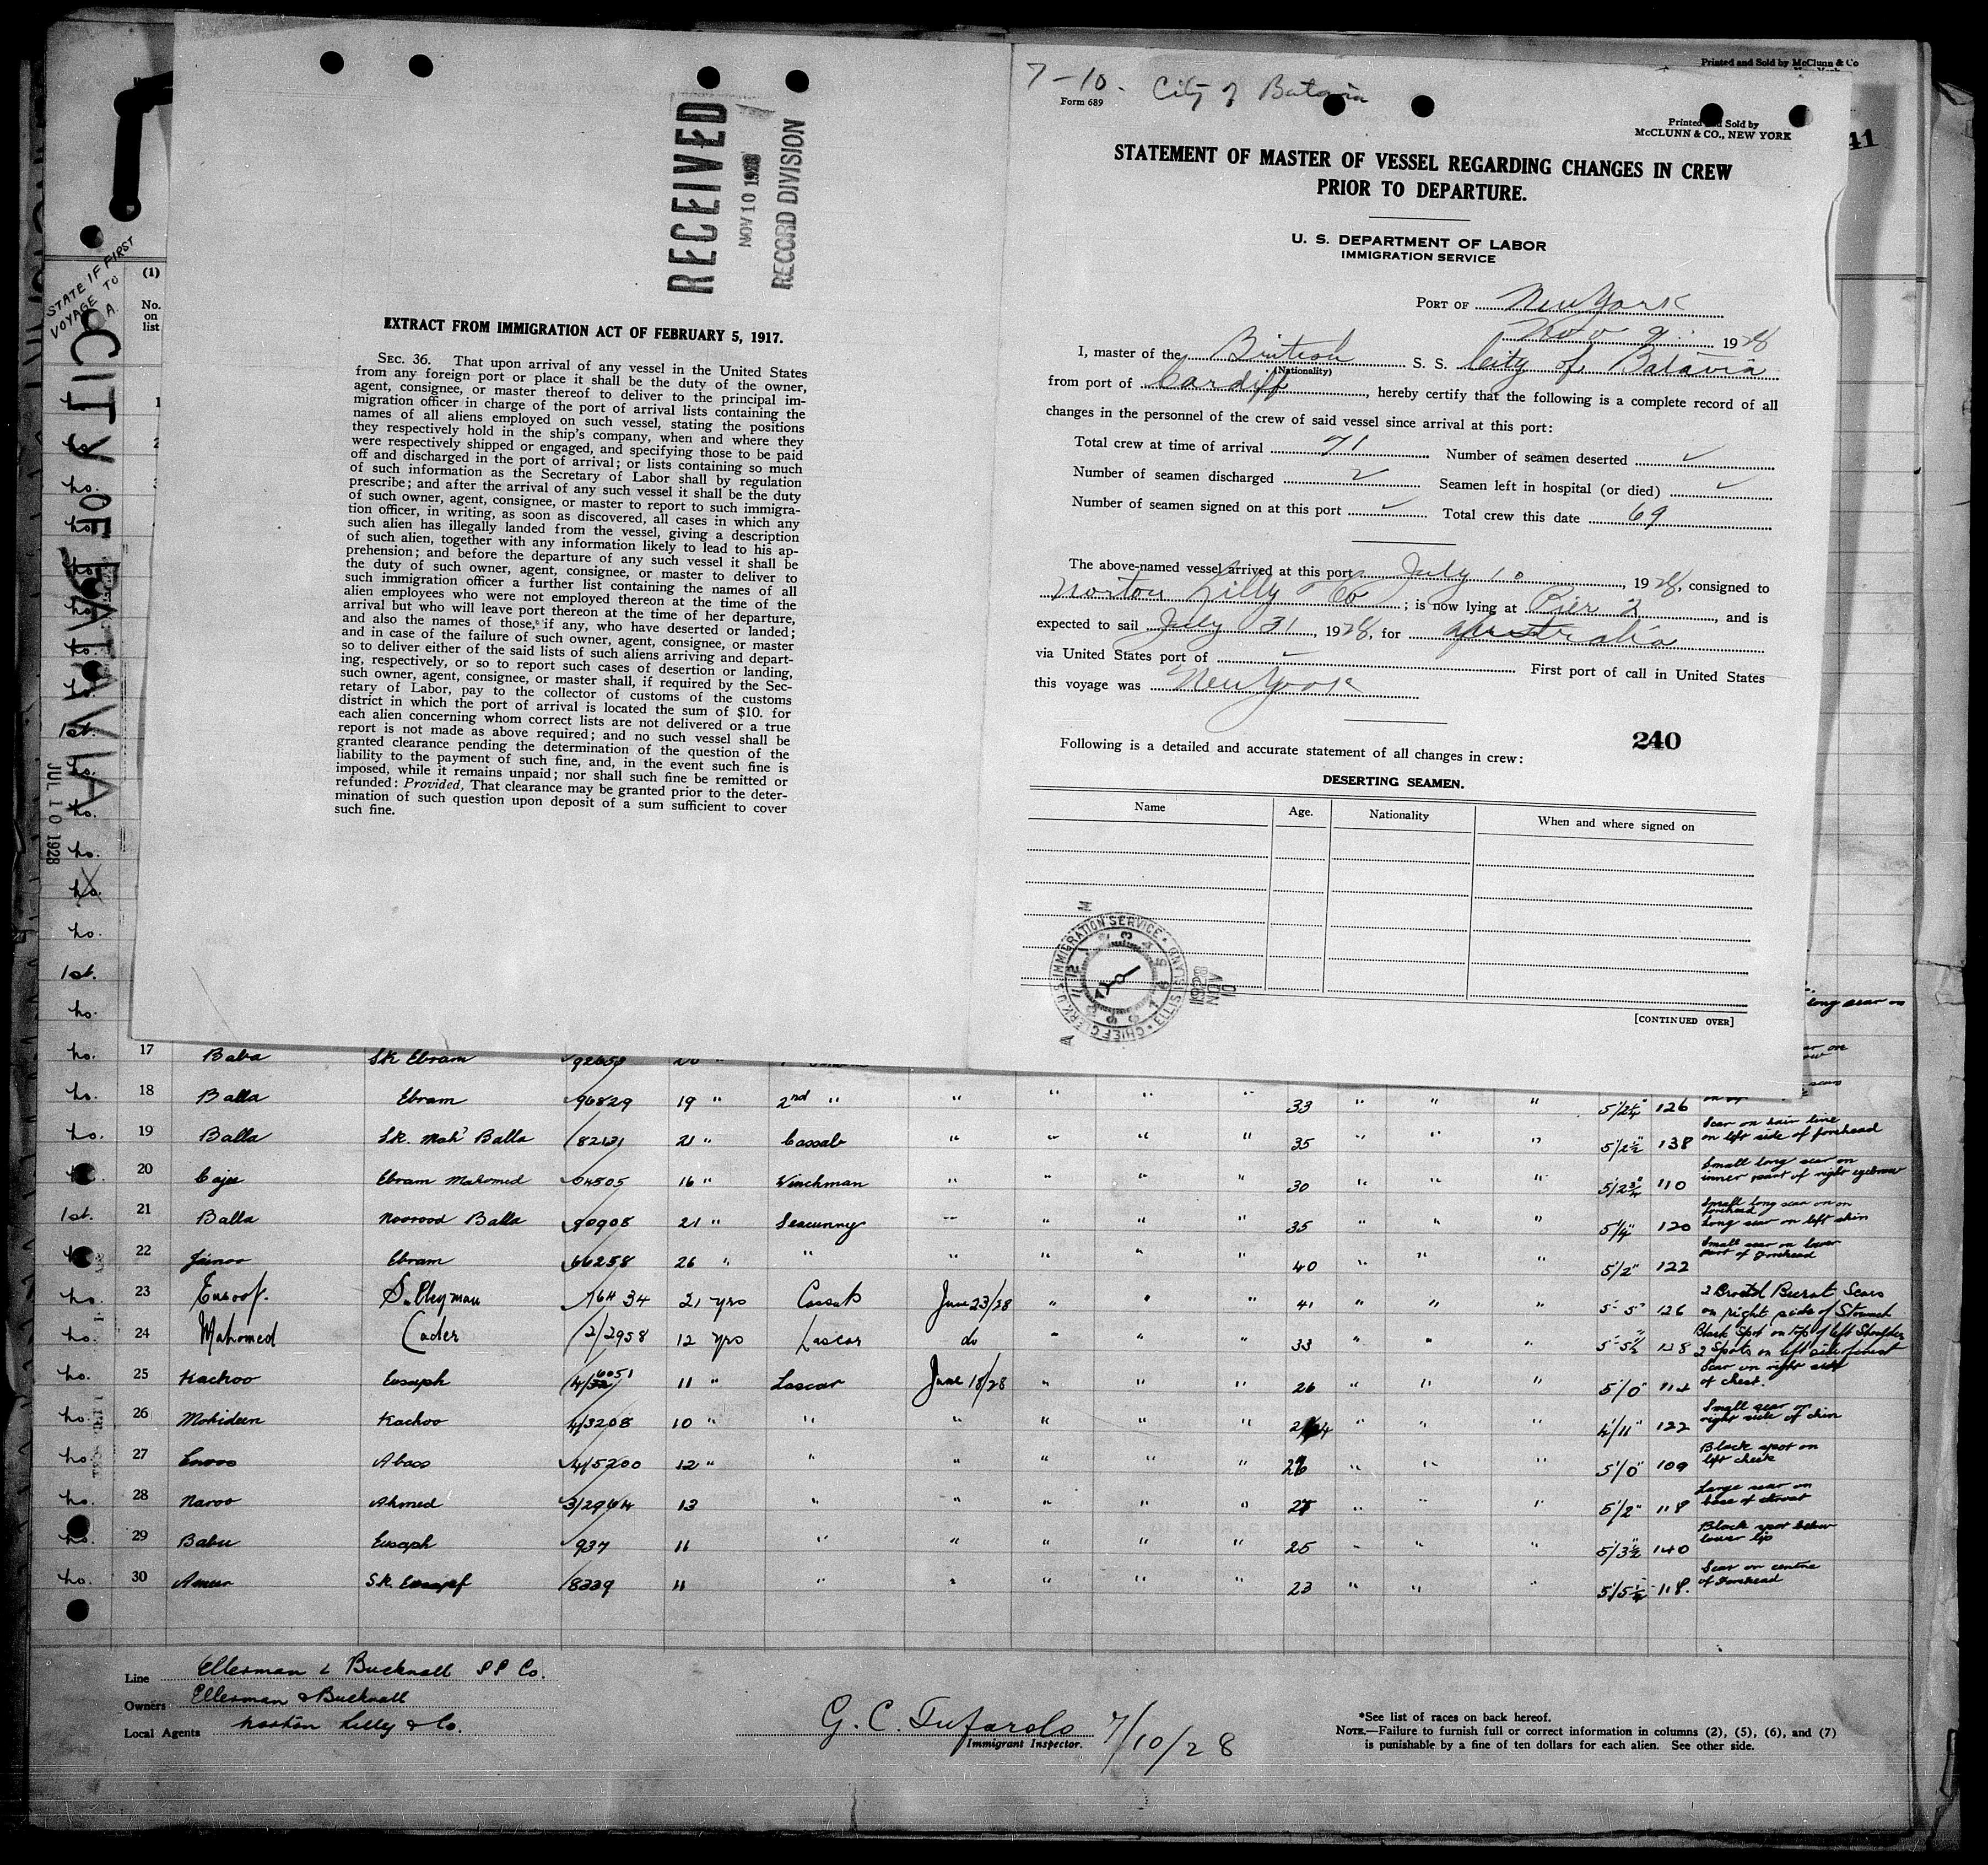 Printed and Sold by McClunn & Co
41
STATE IF FIRST
VOYAGE TO
CITY OF BATAVIA
JUL 10 1928
(1)
No.
on
list
RECEIVED
NOV 10 1928
RECORD DIVISION
EXTRACT FROM IMMIGRATION ACT OF FEBRUARY 5, 1917.
SEC. 36. That upon arrival of any vessel in the United States
from any foreign port or place it shall be the duty of the owner,
agent, consignee, or master thereof to deliver to the principal im-
migration officer in charge of the port of arrival lists containing the
names of all aliens employed on such vessel, stating the positions
they respectively hold in the ship's company, when and where they
were respectively shipped or engaged, and specifying those to be paid
off and discharged in the port of arrival; or lists containing so much
of such information as the Secretary of Labor shall by regulation
prescribe; and after the arrival of any such vessel it shall be the duty
of such owner, agent, consignee, or master to report to such immigra-
tion officer, in writing, as soon as discovered, all cases in which any
such alien has illegally landed from the vessel, giving a description
of such alien, together with any information likely to lead to his ap-
prehension; and before the departure of any such vessel it shall be
the duty of such owner, agent, consignee, or master to deliver to
such immigration officer a further list containing the names of all
alien employees who were not employed thereon at the time of the
arrival but who will leave port thereon at the time of her departure,
and also the names of those, if any, who have deserted or landed;
and in case of the failure of such owner, agent, consignee, or master
so to deliver either of the said lists of such aliens arriving and depart-
ing, respectively, or so to report such cases of desertion or landing,
such owner, agent, consignee, or master shall, if required by the Sec-
retary of Labor, pay to the collector of customs of the customs
district in which the port of arrival is located the sum of $10. for
each alien concerning whom correct lists are not delivered or a true
report is not made as above required; and no such vessel shall be
granted clearance pending the determination of the question of the
liability to the payment of such fine, and, in the event such fine is
imposed, while it remains unpaid; nor shall such fine be remitted or
refunded: Provided, That clearance may be granted prior to the deter-
mination of such question upon deposit of a sum sufficient to cover
such fine.
7-10. City of Batavia
Form 689
Printed and Sold by
McCLUNN & CO., NEW YORK
STATEMENT OF MASTER OF VESSEL REGARDING CHANGES IN CREW
PRIOR TO DEPARTURE.
U. S. DEPARTMENT OF LABOR
IMMIGRATION SERVICE
PORT OF New York
Nov 9 1928
I, master of the British S. S. City of Batavia
(Nationality)
from port of Cardiff, hereby certify that the following is a complete record of all
changes in the personnel of the crew of said vessel since arrival at this port:
Total crew at time of arrival 71 Number of seamen deserted ✓
Number of seamen discharged 2 Seamen left in hospital (or died) ✓
Number of seamen signed on at this port ✓ Total crew this date 69
The above-named vessel arrived at this port July 10, 1928, consigned to
Norton Lilly & Co; is now lying at Pier 2, and is
expected to sail July 31, 1928, for Australia
via United States port of First port of call in United States
this voyage was New York
240
Following is a detailed and accurate statement of all changes in crew:
DESERTING SEAMEN.
Name Age. Nationality When and where signed on
CHIEF CLERK U.S. IMMIGRATION SERVICE ELLIS ISLAND
[CONTINUED OVER]
long scar on
ho. 17 Baba Sk Ebram
ho. 18 Balla Ebram 96829 19 " 2nd " " " " " 33 " " " 126
ho. 19 Balla Sk. Mah' Balla 21 " Cassab " " " " 35 " " " 5/2½ 138 Scar on hair line on left side of forehead
20 Ebram Mahomed 04505 16 " Winchman " " " " 30 " " " 5/2¾ 110 Small long scar on inner part of right eyebrow
1st. 21 Balla Noorood Balla 90908 21 " Seacunny " " " " 35 " " " 5/4" 120 Small long scar on forehead Long scar on left shin
22 Jainoo Ebram 66258 26 " " " " " " 40 " " " 5/2" 122 Small scar on lower part of Forehead
ho. 23 Eusoof. Sulleyman 21 yrs Cassab June 23/28 " " " 41 " " " 5-5" 126 on right side of Stomach
ho. 24 Mahomed Cader 12 yrs Lascar do " " " 33 " " " 138 Black Spot on top of left Shoulder
ho. 25 Kachoo Eusoph 11 " Lascar June 18/28 " " " 26 " " " 5/0" 114 Scar on right side of chest.
ho. 26 Mohideen Kachoo 4/3208 10 " " " " " " " " " 4/11" 122 Small scar on right side of chin
ho. 27 Abass 4/5200 12 " " " " " " 26 " " " 5/0" 109 Black spot on left cheek
ho. 28 Naroo Ahmed 13 " " " " " " " " 5/2" 118 Large scar on base of throat
ho. 29 Babu Eusoph 937 11 " " " " " 25 " " " 5/3½" 140 Black spot below lower lip
ho. 30 Ameer S.K. 11 " " " " " 23 " " " 118. Scar on centre of Forehead
Line Ellerman & Bucknall SS Co.
Owners Ellerman & Bucknall
Local Agents Norton Lilly & Co.
G. C. Tufarolo 7/10/28
Immigrant Inspector.
*See list of races on back hereof.
NOTE.—Failure to furnish full or correct information in columns (2), (5), (6), and (7)
is punishable by a fine of ten dollars for each alien. See other side.